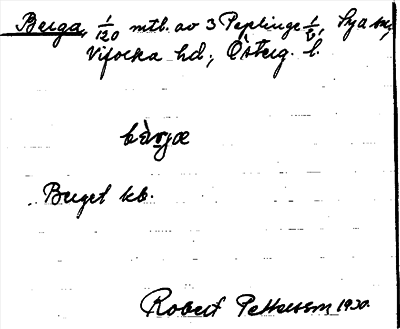 Berga, 1/120 mtl. av 3 Peplinge 1/8, Sya sn,
Vifolka hd; Österg. l.
bæ̀rjæ
Berget kb.
Robert Pettersson, 1930.